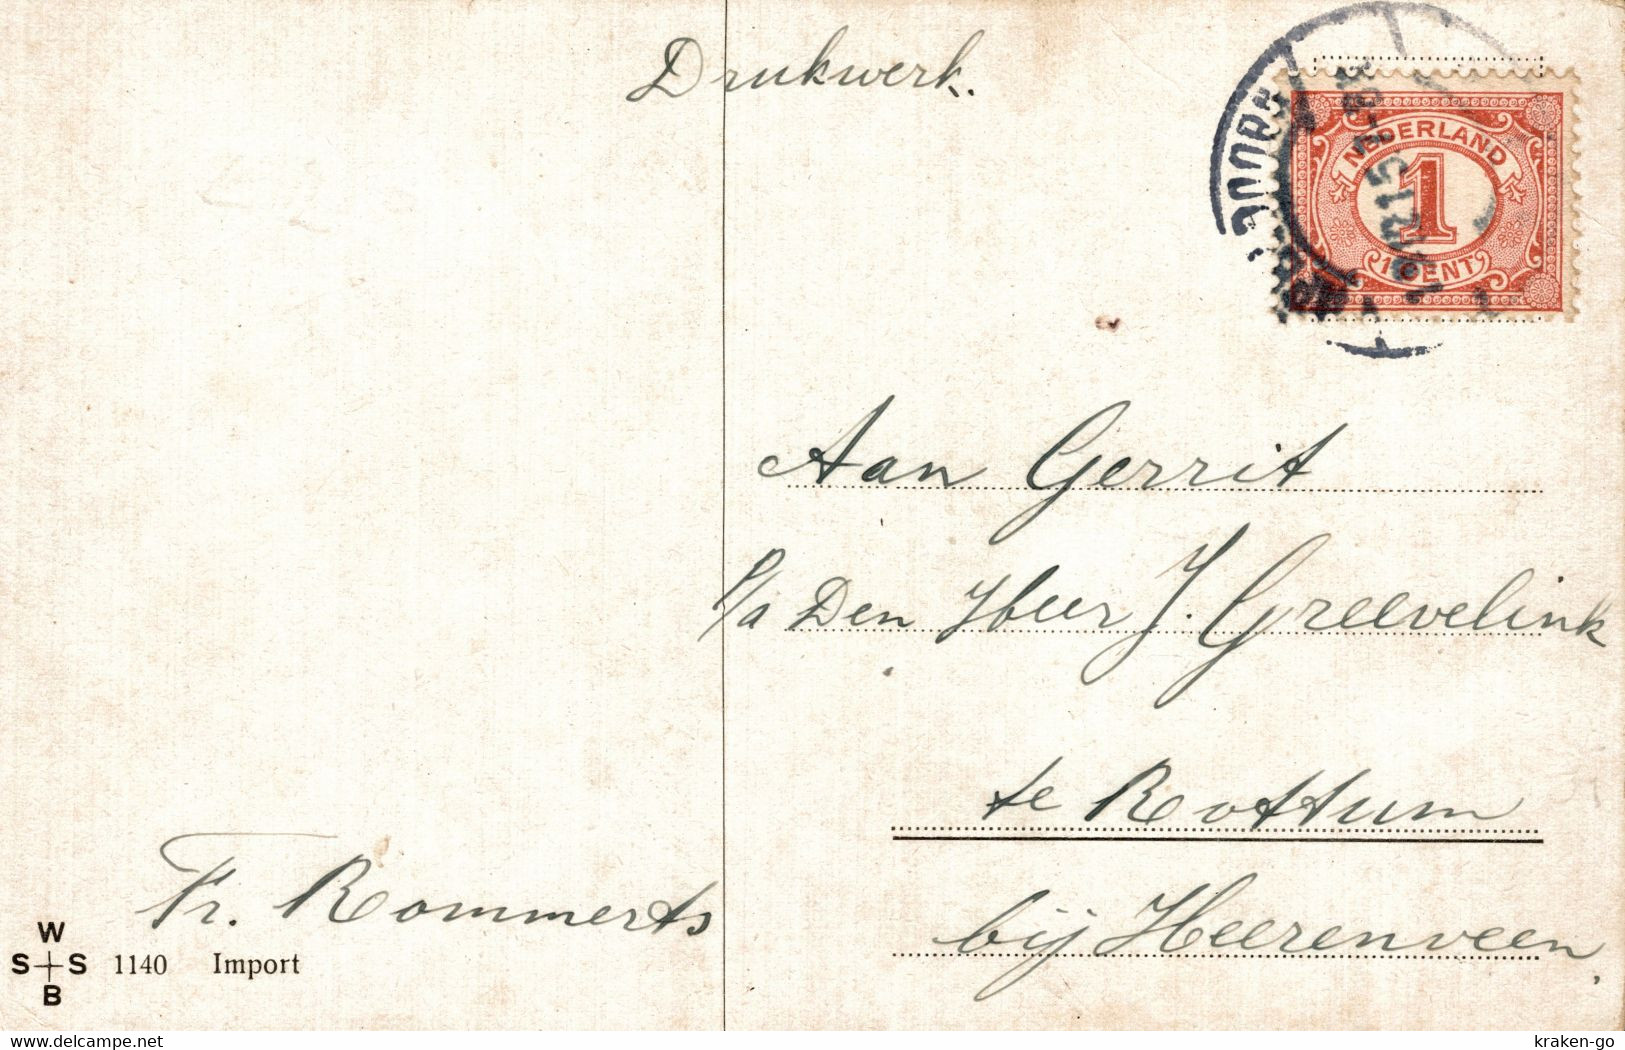 Drukwerk.
NEDERLAND
1
1 CENT
Aan Gerrit
p/a Den Heer J. Greevelink
te Rottum
bij Heerenveen.
Fr. Rommerts
W
S S
B
1140 Import
delcampe.net
kraken-go